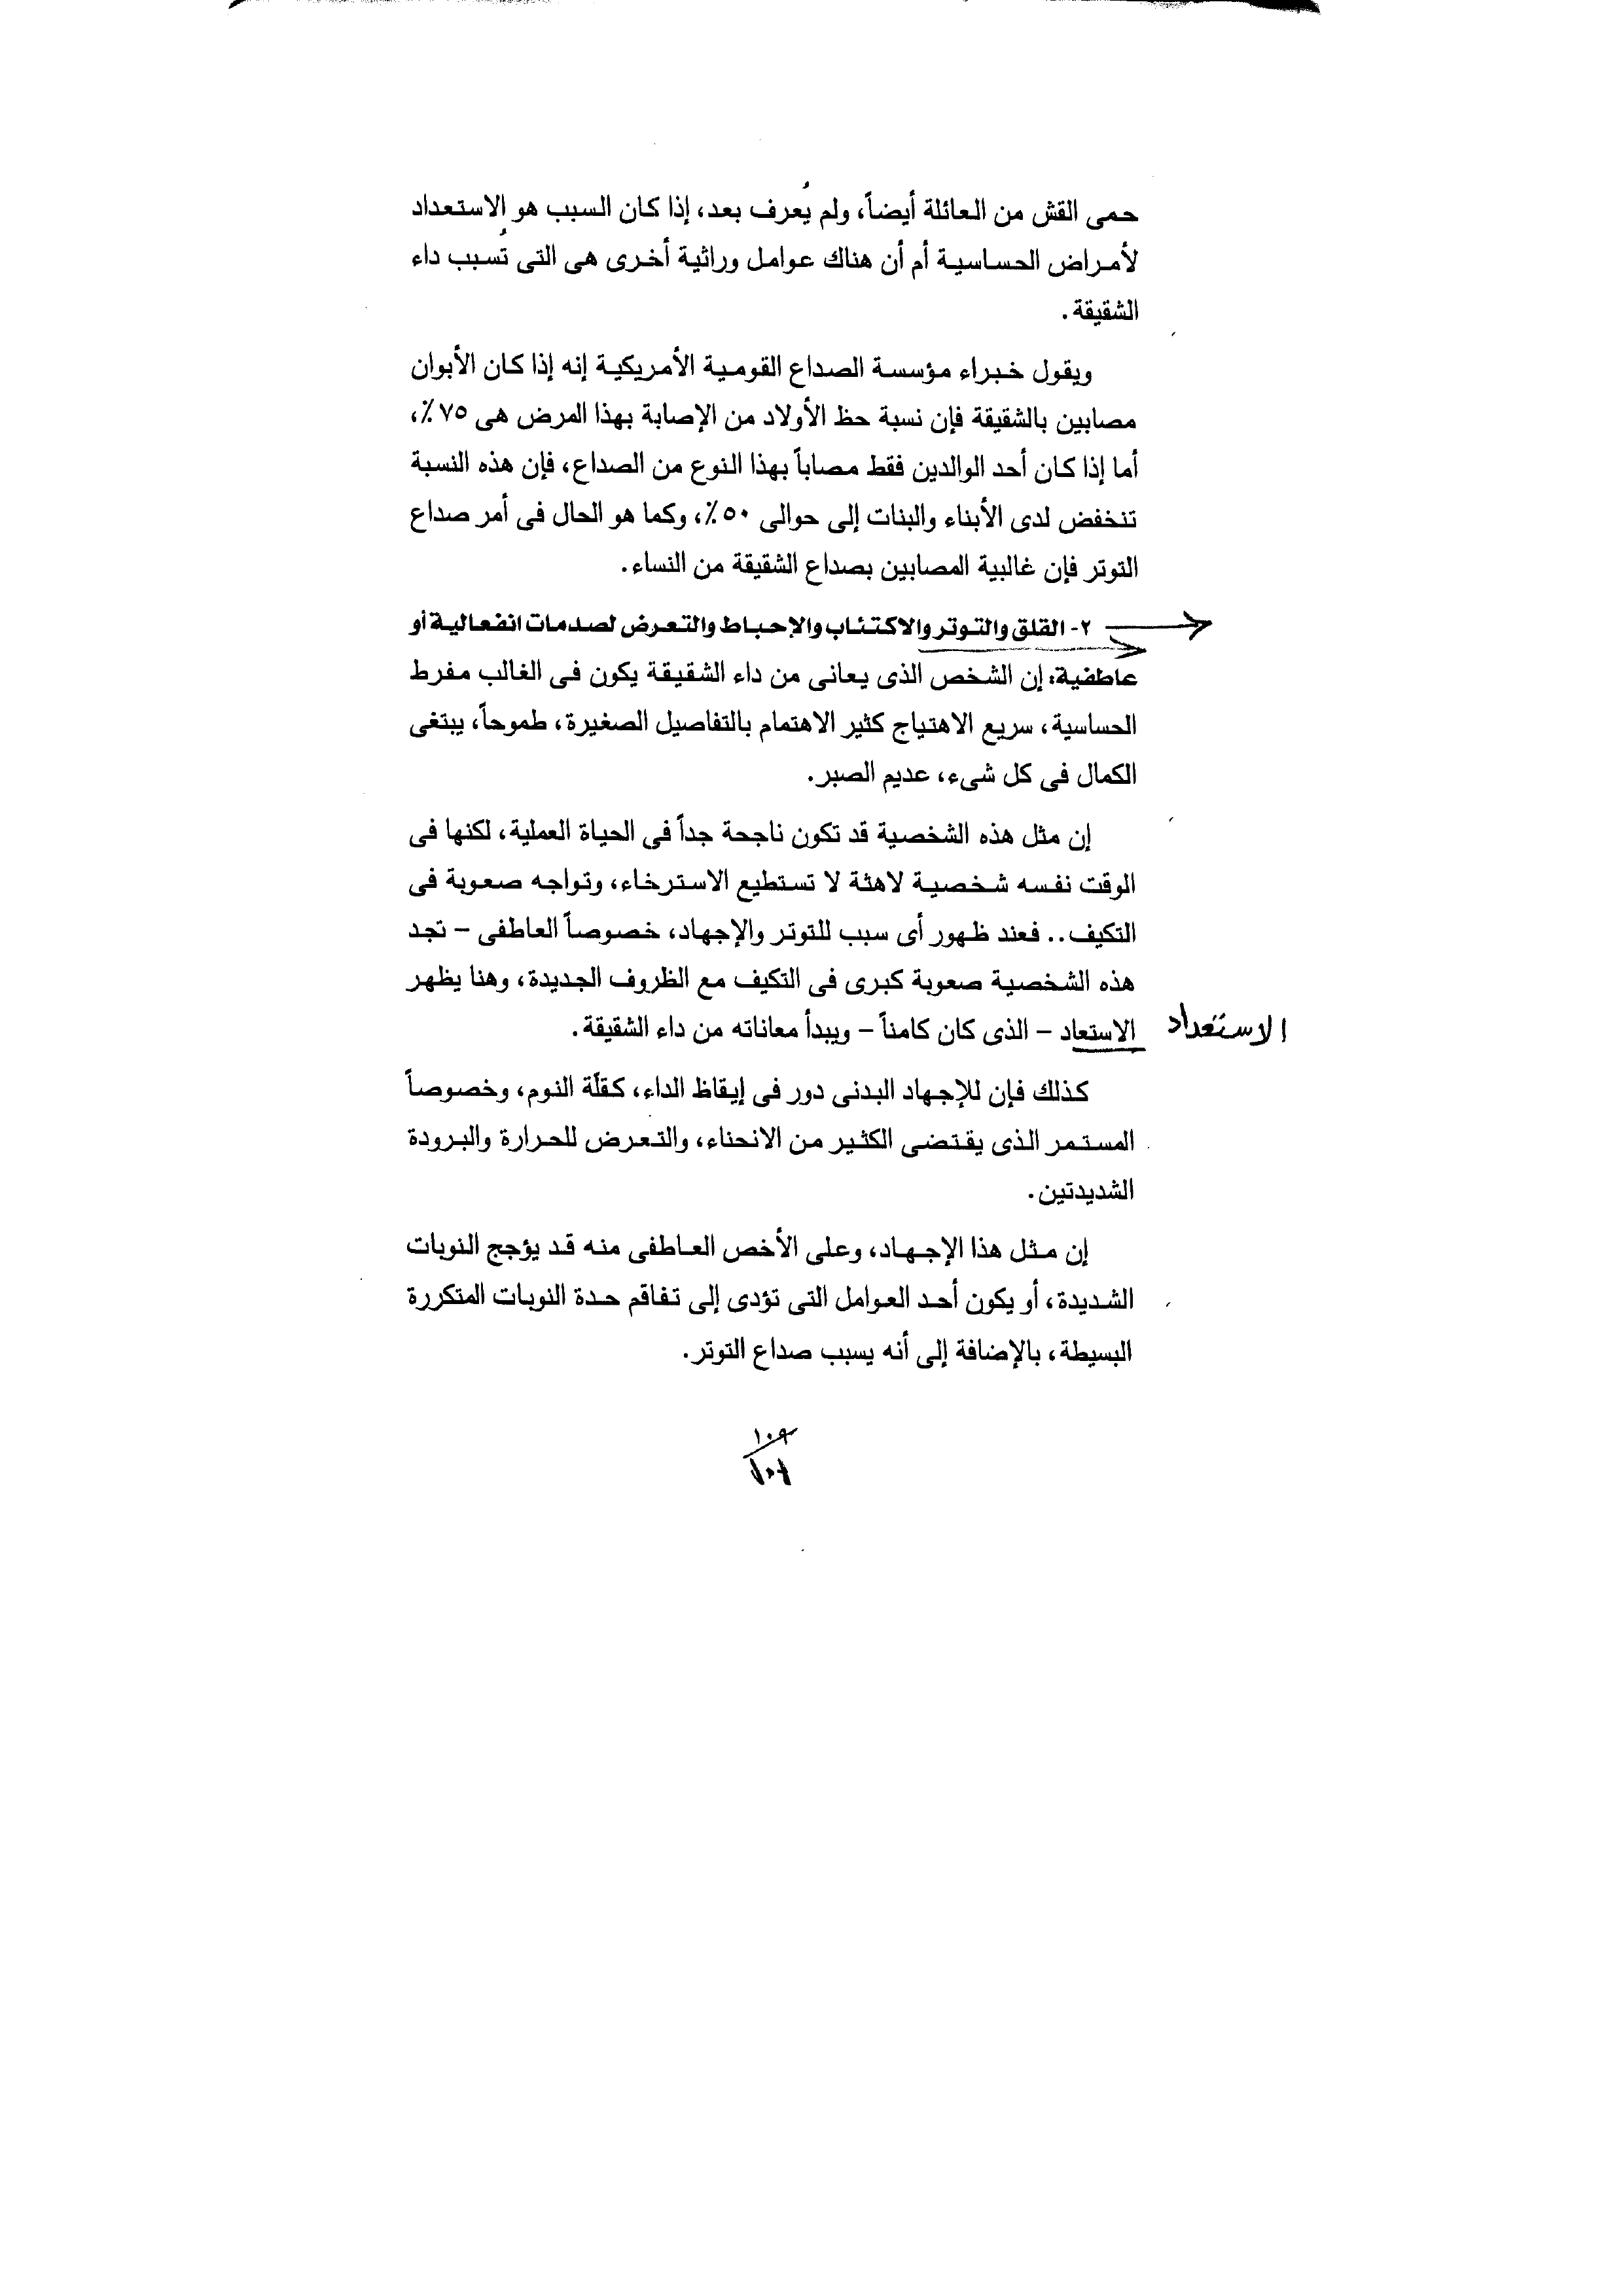 حمى القش من العائلة أيضاً، ولم يُعرف بعد، إذا كان السبب هو الاستعداد
لأمراض الحساسية أم أن هناك عوامل وراثية أخرى هى التى تُسبب داء
الشقيقة.
ويقول خبراء مؤسسة الصداع القومية الأمريكية إنه إذا كان الأبوان
مصابين بالشقيقة فإن نسبة حظ الأولاد من الإصابة بهذا المرض هى ٧٥٪،
أما إذا كان أحد الوالدين فقط مصاباً بهذا النوع من الصداع، فإن هذه النسبة
تنخفض لدى الأبناء والبنات إلى حوالى ٥٠٪، وكما هو الحال فى أمر صداع
التوتر فإن غالبية المصابين بصداع الشقيقة من النساء.
٢- القلق والتوتر والاكتئاب والإحباط والتعرض لصدمات انفعالية أو
عاطفية: إن الشخص الذى يعانى من داء الشقيقة يكون فى الغالب مفرط
الحساسية، سريع الاهتياج كثير الاهتمام بالتفاصيل الصغيرة، طموحاً، يبتغى
الكمال فى كل شىء، عديم الصبر.
إن مثل هذه الشخصية قد تكون ناجحة جداً فى الحياة العملية، لكنها فى
الوقت نفسه شخصية لاهثة لا تستطيع الاسترخاء، وتواجه صعوبة فى
التكيف.. فعند ظهور أى سبب للتوتر والإجهاد، خصوصاً العاطفى – تجد
هذه الشخصية صعوبة كبرى فى التكيف مع الظروف الجديدة، وهنا يظهر
الاستعاد – الذى كان كامناً – ويبدأ معاناته من داء الشقيقة.
الاستعداد
كذلك فإن للإجهاد البدنى دور فى إيقاظ الداء، كقلّة النوم، وخصوصاً
المستمر الذى يقتضى الكثير من الانحناء، والتعرض للحرارة والبرودة
الشديدتين.
إن مثل هذا الإجهاد، وعلى الأخص العاطفى منه قد يؤجج النوبات
الشديدة، أو يكون أحد العوامل التى تؤدى إلى تفاقم حدة النوبات المتكررة
البسيطة، بالإضافة إلى أنه يسبب صداع التوتر.
١٠٩